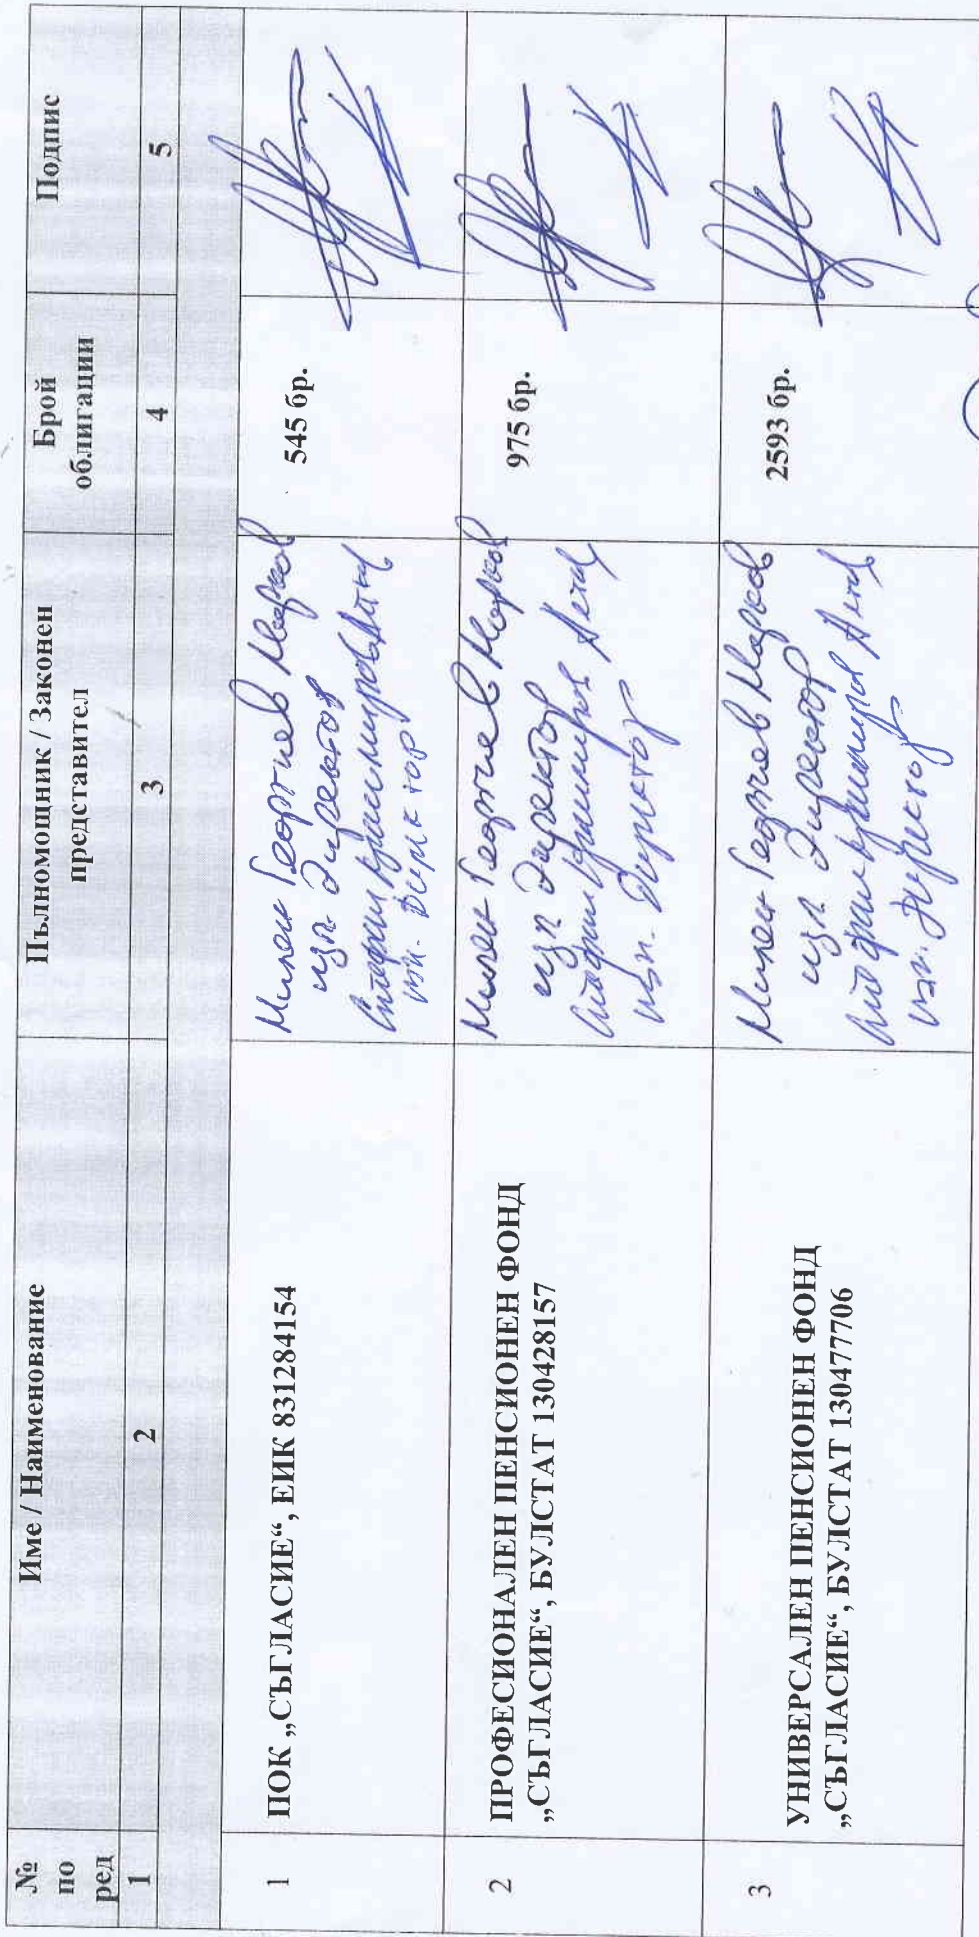 № по ред
Име / Наименование
Пълномощник / Законен представител
Брой облигации
Подпис
1
2
3
4
5
1
ПОК „СЪГЛАСИЕ“, ЕИК 831284154
Милен Георгиев Марков
изп. директор
изп. Директор
545 бр.
2
ПРОФЕСИОНАЛЕН ПЕНСИОНЕН ФОНД
„СЪГЛАСИЕ“, БУЛСТАТ 130428157
Милен Георгиев Марков
изп директор
изп. Директор
975 бр.
3
УНИВЕРСАЛЕН ПЕНСИОНЕН ФОНД
„СЪГЛАСИЕ“, БУЛСТАТ 130477706
Милен Георгиев Марков
изп. директор
изп. Директор
2593 бр.